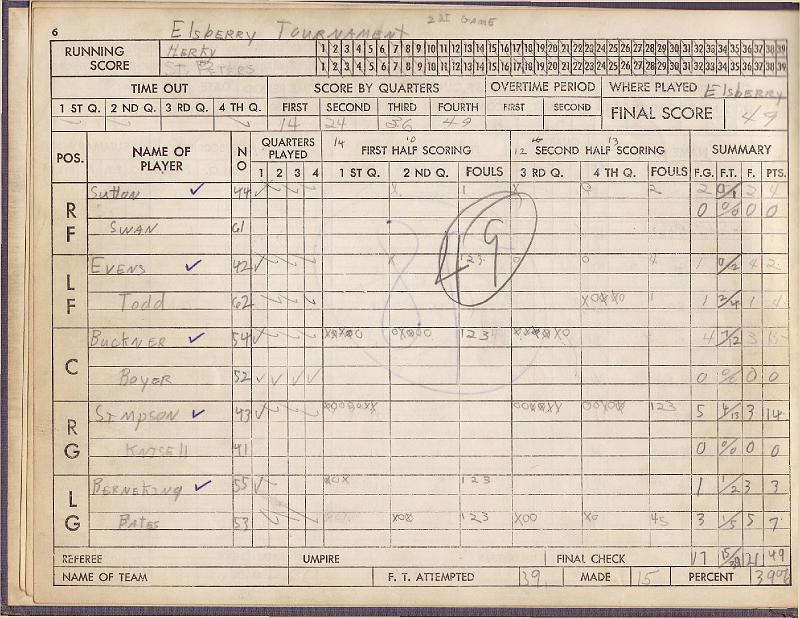 6 Elsberry Tournament 2st Game
RUNNING SCORE
Herky 1 2 3 4 5 6 7 8 9 10 11 12 13 14 15 16 17 18 19 20 21 22 23 24 25 26 27 28 29 30 31 32 33 34 35 36 37 38 39
St. Peters 1 2 3 4 5 6 7 8 9 10 11 12 13 14 15 16 17 18 19 20 21 22 23 24 25 26 27 28 29 30 31 32 33 34 35 36 37 38 39
TIME OUT SCORE BY QUARTERS OVERTIME PERIOD WHERE PLAYED Elsberry
1 ST Q. 2 ND Q. 3 RD Q. 4 TH Q. FIRST SECOND THIRD FOURTH FIRST SECOND FINAL SCORE 49
14 24 36 49
POS. NAME OF PLAYER NO QUARTERS PLAYED 14 FIRST HALF SCORING 10 12 SECOND HALF SCORING 13 SUMMARY
1 2 3 4 1 ST Q. 2 ND Q. FOULS 3 RD Q. 4 TH Q. FOULS F.G. F.T. F. PTS.
RF Sutton ✓ 44 X 1 X O 2 2 0/1 2 4
0 0/0 0 0
Swan 61
LF Evens ✓ 42 X 123 O O 4 1 0/2 4 2
Todd 62 1 1 2/4 1 4
49
C Buckner ✓ 54 123 4 7/12 3 15
Boyer 52 ✓ ✓ ✓ ✓ 0 0/0 0 0
RG Simpson ✓ 43 123 5 4/13 3 14
41 0 0/0 0 0
LG Berneking ✓ 55 XOX 123 1 1/2 3 3
Bates 53 XOX 123 XOO XO 45 3 1/5 5 7
REFEREE UMPIRE FINAL CHECK 17 15/39 21 49
NAME OF TEAM F. T. ATTEMPTED 39 MADE 15 PERCENT 39%